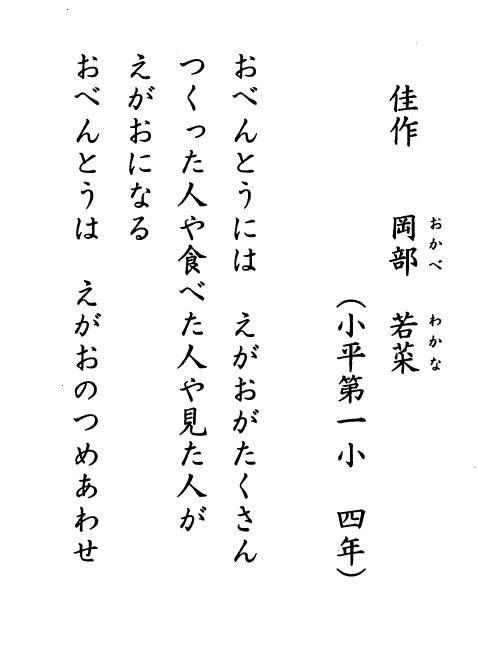 佳作　岡部　若菜
おかべ　わかな
（小平第一小　四年）
おべんとうには　えがおがたくさん
つくった人や食べた人や見た人が
えがおになる
おべんとうは　えがおのつめあわせ